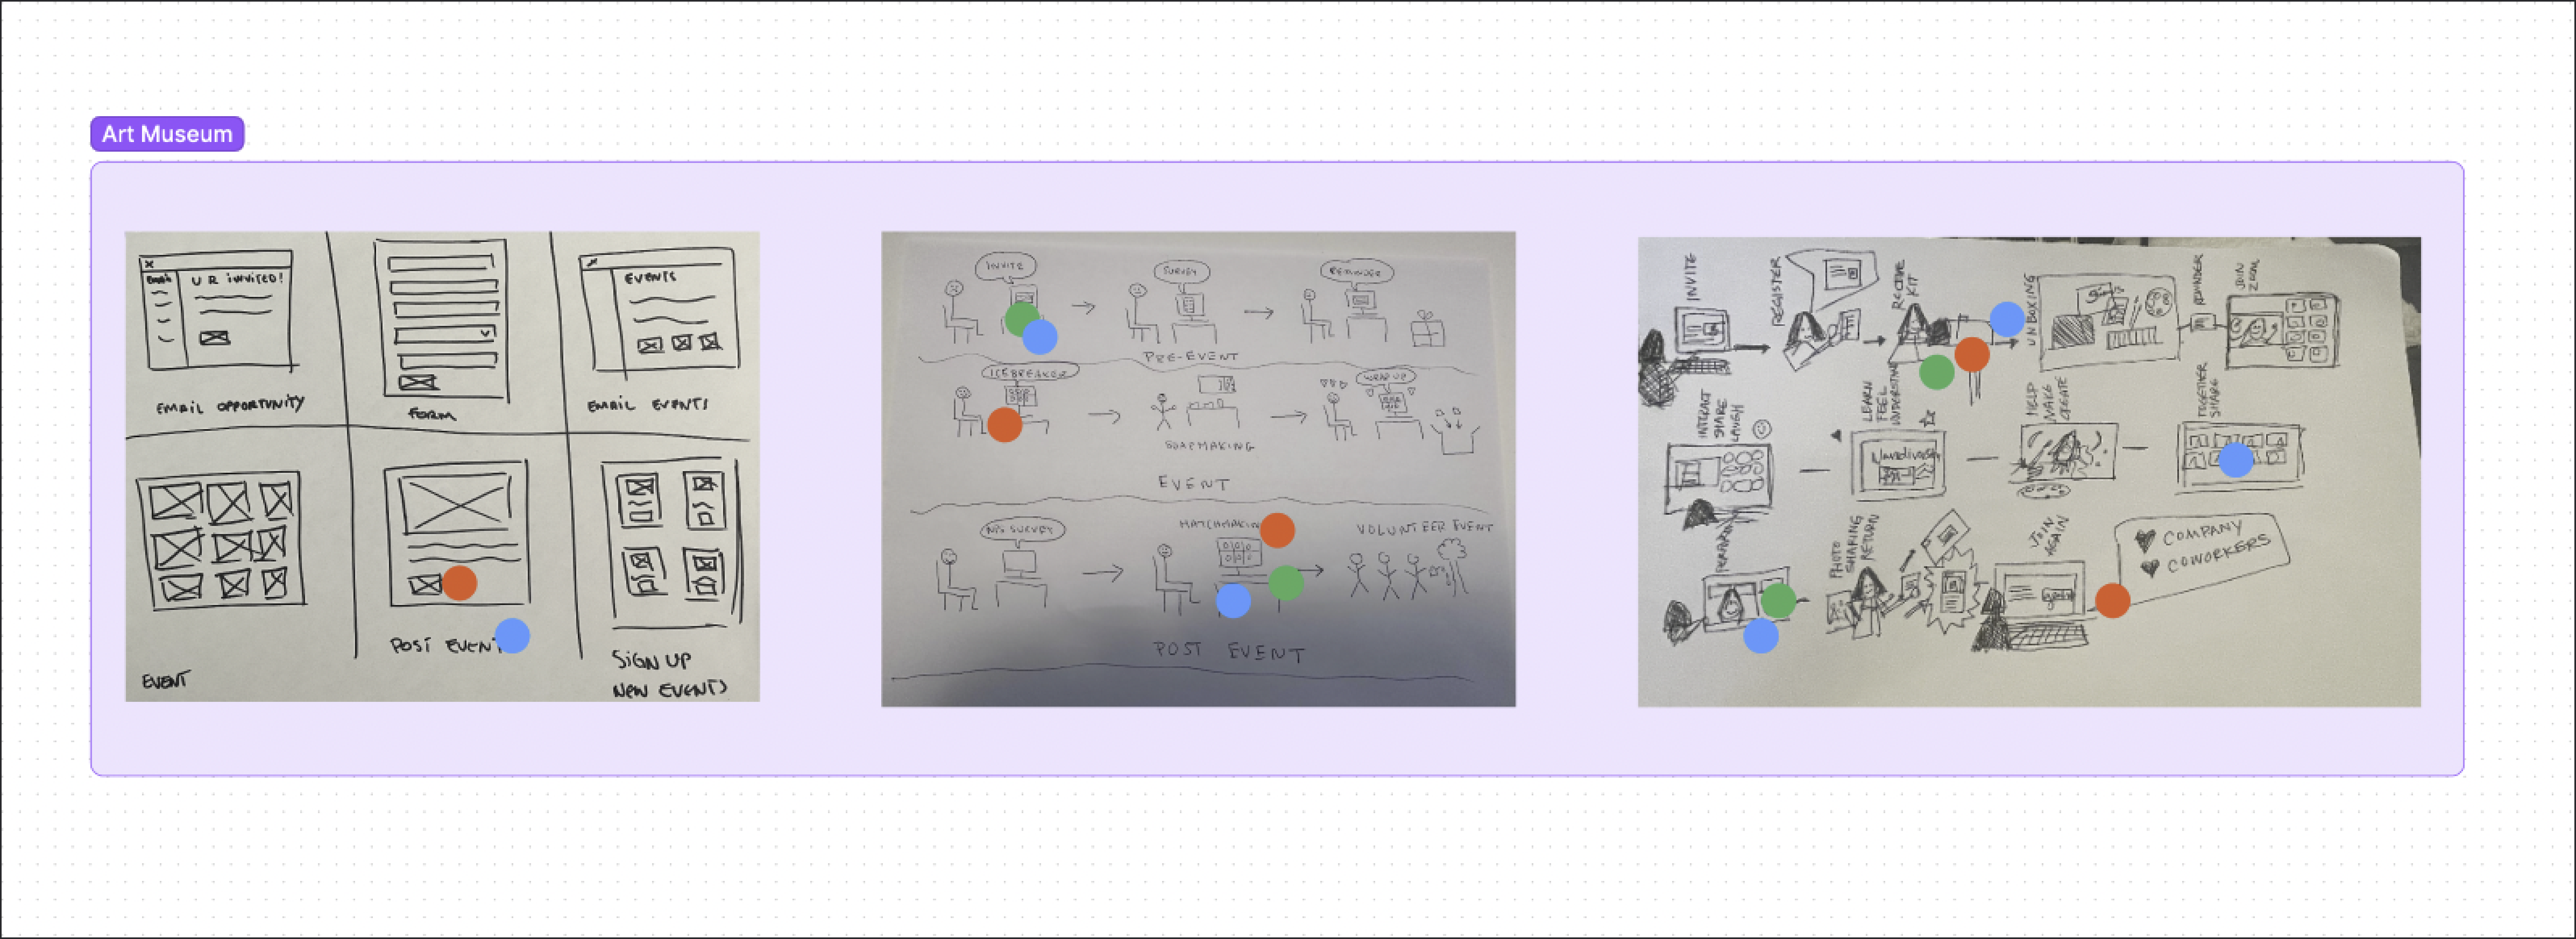 Art Museum
Email
U R INVITED!
EMAIL OPPORTUNITY
FORM
EVENTS
EMAIL EVENTS
EVENT
POST EVENT
SIGN UP
NEW EVENTS
INVITE
SURVEY
REMINDER
PRE-EVENT
ICEBREAKER
SOAPMAKING
WRAP UP
EVENT
NPS SURVEY
MATCHMAKIN
VOLUNTEER EVENT
POST EVENT
INVITE
REGISTER
RECEIVE
KIT
UNBOXING
REMINDER
JOIN
ZOOM
INTERACT
SHARE
LAUGH
LEARN
FEEL
UNDERSTAND
HELP
MAKE
CREATE
TOGETHER
SHARE
PHOTO
SHARING
RETURN
JOIN
AGAIN
COMPANY
COWORKERS